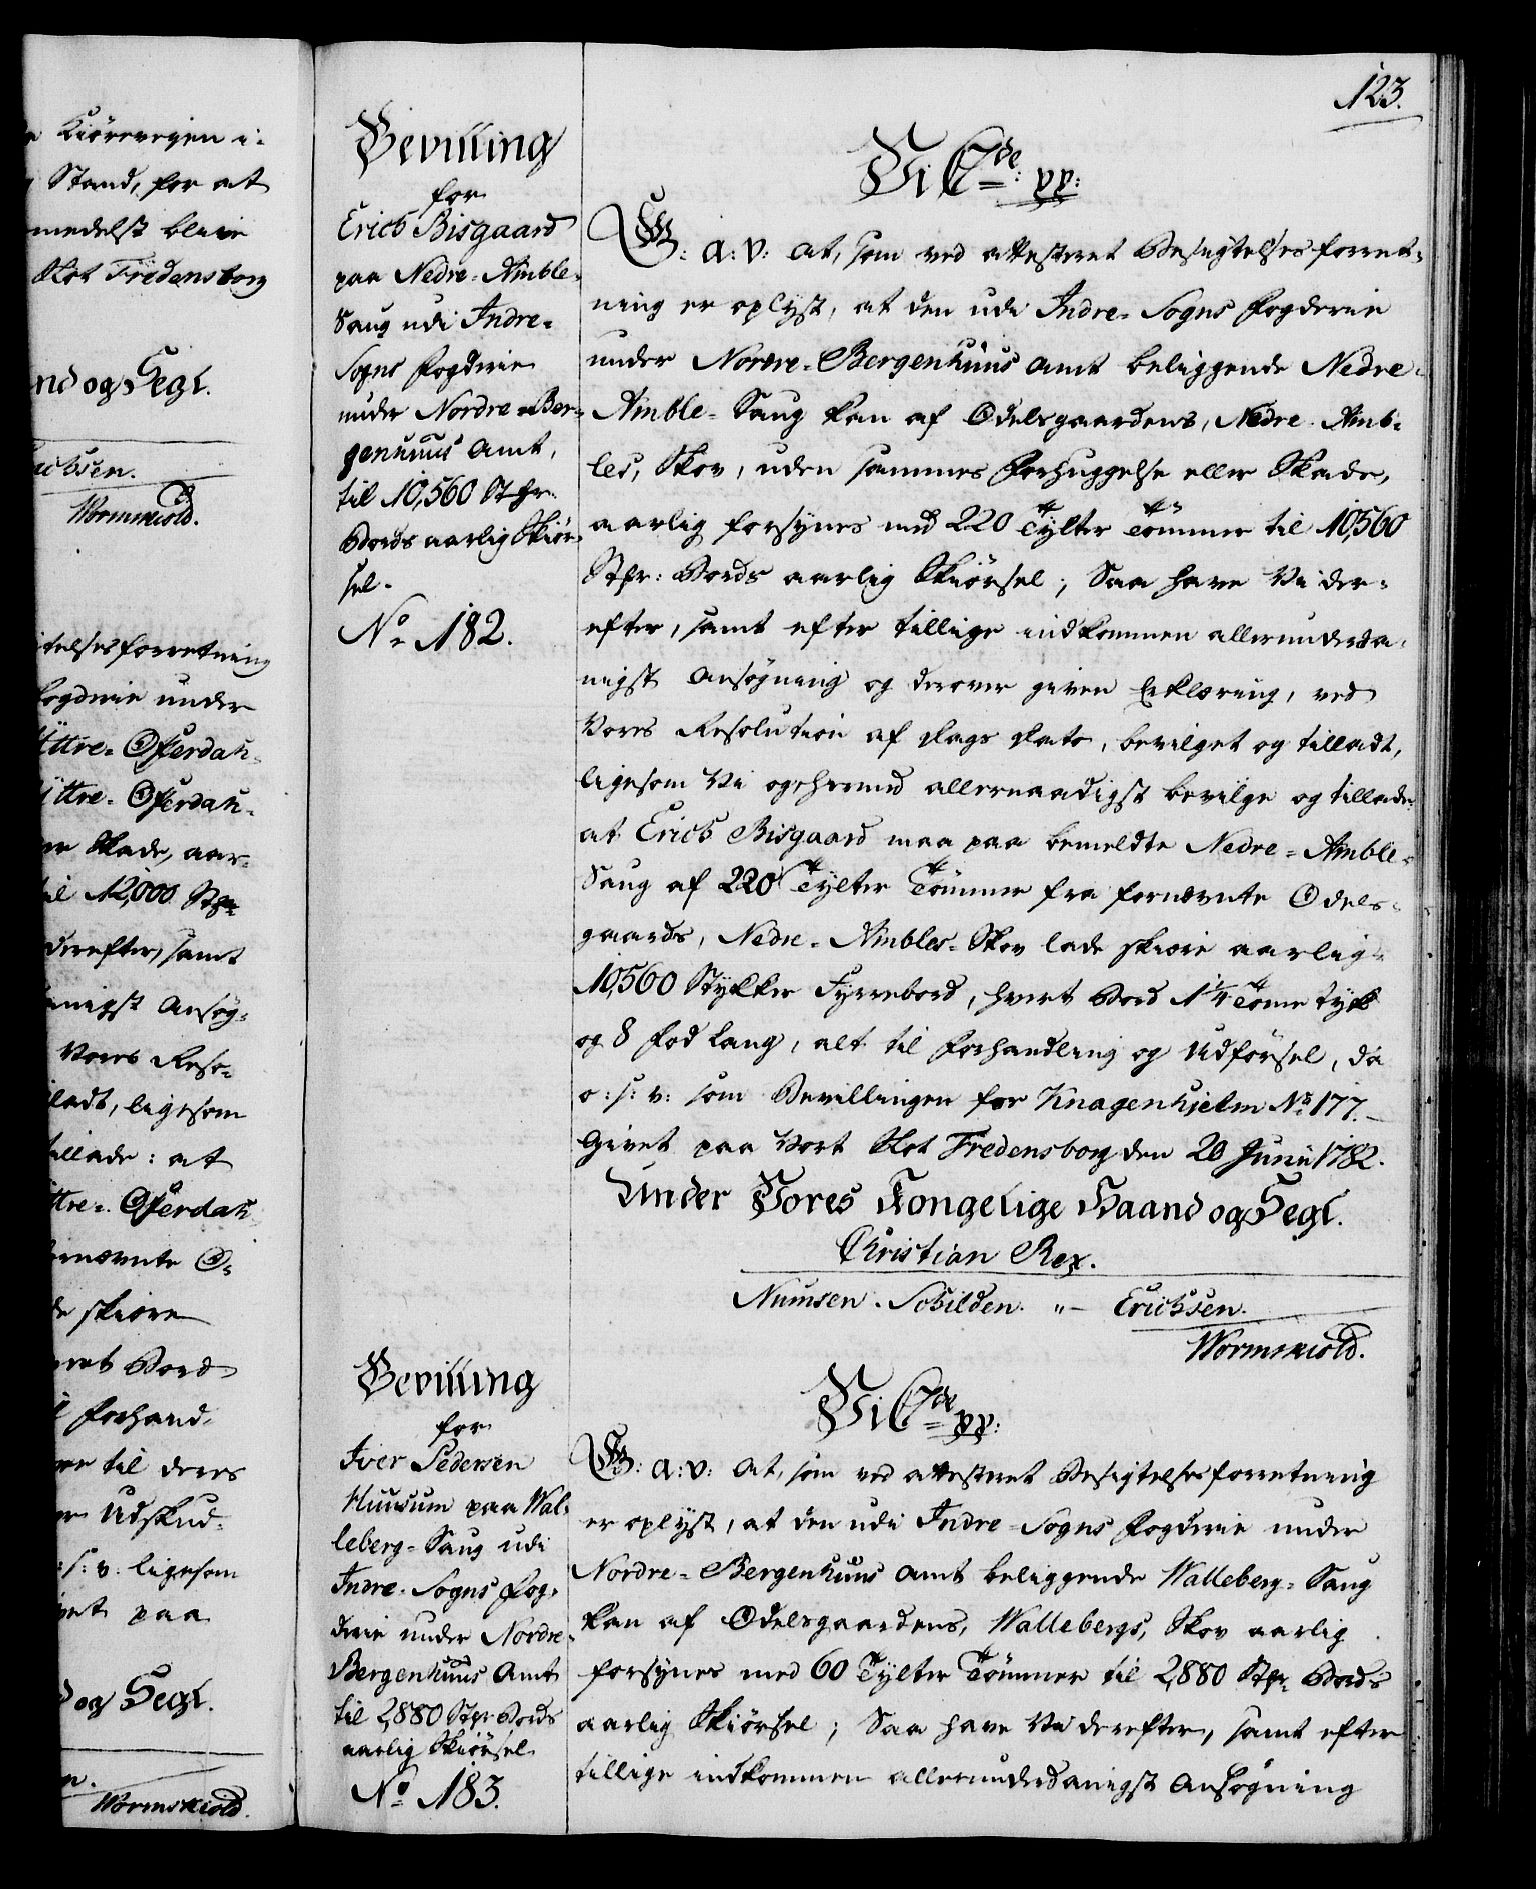 123.
Kiöreveyen i:
Stand, for at
medelst blive
Slot Fredensborg
nd og Segl.
richsen.
Wormskiold.
telsesforretning
fogderie under
Yttre-Offerdah-
yttre-Offerdah-
er Skade, aar-
til 12,000 Stkr
derefter, samt
nigst Ansøg-
Vores Reso-
ladt, ligesom
tillade: at
ttre-Offerdah
ernævnte O-
de skiøre
hvert Bord
forhand-
til deres
Udskud-
s: v: ligesom
ivet paa
d og Segl.
n.
Wormskiold.
Bevilling
for
Erich Bisgaard
paa Nedre-Aimble-
Saug udi Indre-
Sogns fogderie
under Nordre-Ber-
genhuus Amt,
til 10,560 Stkr.
Bords aarlig Skiør-
sel.
No 182.
Vi C 7de: pp:
G: A: V: At, som ved attesteret Besigtelsesforret-
ning er oplyst, at den udi Indre-Sogns fogderie
under Nordre-Bergenhuus Amt beliggende Nedre-
Aimble-Saug kan af Odelsgaardens, Nedre-Aimb-
les, Skov, uden sammes forhuggelse eller Skade,
aarlig forsynes med 220 Tylter Tømmer til 10,560
Stkr: Bords aarlig Skiørsel; Saa have Vi der-
efter, samt efter tillige indkommen allerunderda-
nigst Ansøgning og derover given Erklæring, ved
Vores Resolution af Dags Dato, bevilget og tilladt,
ligesom Vi og hermed allernaadigst bevilge og tillade:
at Erich Bisgaard maa paa bemeldte Nedre-Aimble-
Saug af 220 Tylter Tømmer fra fornævnte Odels-
gaards, Nedre-Aimbles-Skov lade skiøre aarlig
10,560 Stykker Fyrrebord, hvert Bord 1 1/4 Tomme tyk
og 8 fod lang, alt til forhandling og Udførsel, da
o: s: v: som Bevillingen for Knagenhielm No 177.
Givet paa Vort Slot Fredensborg den 20 Junii 1782.
Under Vores Kongelige Haand og Segl.
Christian Rex.
Numsen. Schilden. „ - Erichsen.
Wormskiold.
Bevilling
for
Iver Pedersen
Huusum paa Wal-
leberg-Saug udi
Indre-Sogns fog-
derie under Nordre-
Bergenhuus Amt
til 2,880 Stkr Bords
aarlig Skiørsel
No 183.
Vi C 7de pp:
G: A: V: At, som ved attesteret Besigtelsesforretning
er oplyst, at den udi Indre-Sogns fogderie under
Nordre-Bergenhuus Amt beliggende Walleberg-Saug
kan af Odelsgaardens, Wallebergs, Skov aarlig
forsynes med 60 Tylter Tømmer til 2,880 Stkr Bords
aarlig Skiørsel; Saa have Vi derefter, samt efter
tillige indkommen allerunderdanigst Ansøgning